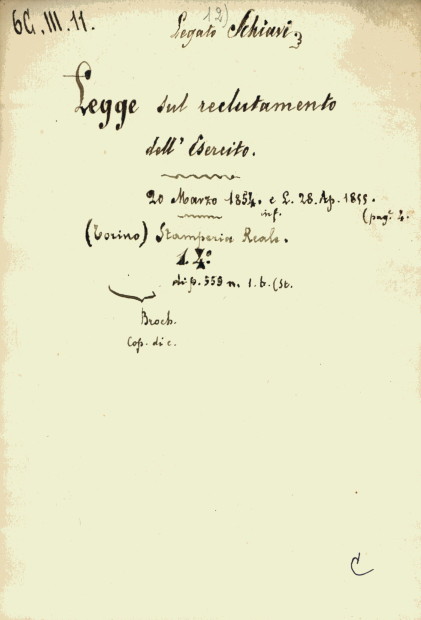 6C.III.11.
12)
Legato Schiavi
Legge sul reclutamento
dell' Esercito.
20 Marzo 1854. e L. 28. Ap. 1855.
inf. (pag. 4.
(Torino) Stamperia Reale.
di p. 559 n. 1. b. (st.
Broch.
Cop. di c.
C